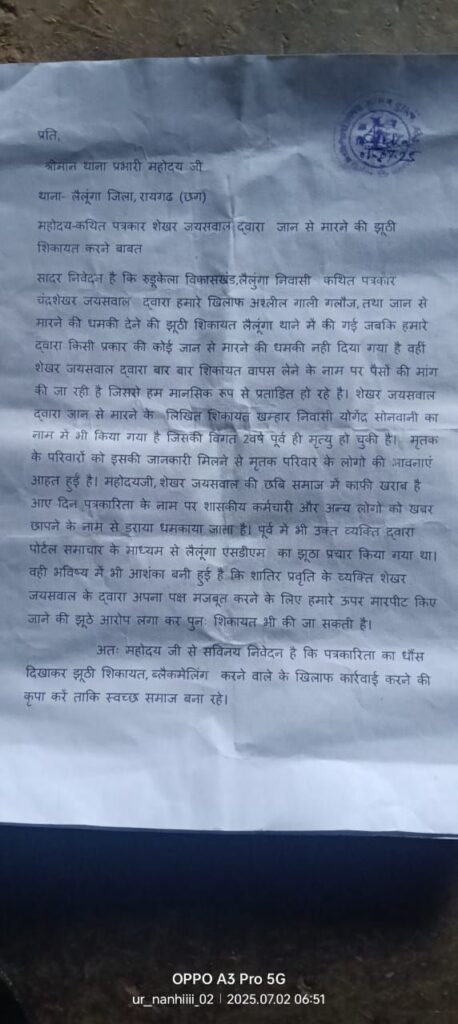 प्रति,
श्रीमान थाना प्रभारी महोदय जी
थाना- लैलूंगा जिला, रायगढ (छग)
महोदय-कथित पत्रकार शेखर जयसवाल द्वारा जान से मारने की झूठी
शिकायत करने बाबत
सादर निवेदन है कि रुडुकेला विकासखंड,लैलुंगा निवासी कथित पत्रकार
चंद्रशेखर जयसवाल द्वारा हमारे खिलाफ अश्लील गाली गलौज, तथा जान से
मारने की धमकी देने की झूठी शिकायत लैलूंगा थाने में की गई जबकि हमारे
द्वारा किसी प्रकार की कोई जान से मारने की धमकी नही दिया गया है वहीं
शेखर जयसवाल द्वारा बार बार शिकायत वापस लेने के नाम पर पैसों की मांग
की जा रही है जिससे हम मानसिक रूप से प्रताडित हो रहे है। शेखर जयसवाल
द्वारा जान से मारने के लिखित शिकायत खम्हार निवासी योगेंद्र सोनवानी का
नाम में भी किया गया है जिसकी विगत 2वर्ष पूर्व ही मृत्यु हो चुकी है। मृतक
के परिवारों को इसकी जानकारी मिलने से मृतक परिवार के लोगो की भावनाएं
आहत हुई है। महोदयजी,शेखर जयसवाल की छबि समाज में काफी खराब है
आए दिन पत्रकारिता के नाम पर शासकीय कर्मचारी और अन्य लोगो को खबर
छापने के नाम से डराया धमकाया जाता है। पूर्व मे भी उक्त व्यक्ति द्वारा
पोर्टल समाचार के माध्यम से लैलूंगा एसडीएम का झूठा प्रचार किया गया था।
वही भविष्य में भी आशंका बनी हुई है कि शातिर प्रवृति के व्यक्ति शेखर
जयसवाल के द्वारा अपना पक्ष मजबूत करने के लिए हमारे ऊपर मारपीट किए
जाने की झूठे आरोप लगा कर पुनः शिकायत भी की जा सकती है।
अतः महोदय जी से सविनय निवेदन है कि पत्रकारिता का धौंस
दिखाकर झूठी शिकायत, ब्लैकमेलिंग करने वाले के खिलाफ कार्रवाई करने की
कृपा करें ताकि स्वच्छ समाज बना रहे।
OPPO A3 Pro 5G
ur_nanhiiii_02 | 2025.07.02 06:51